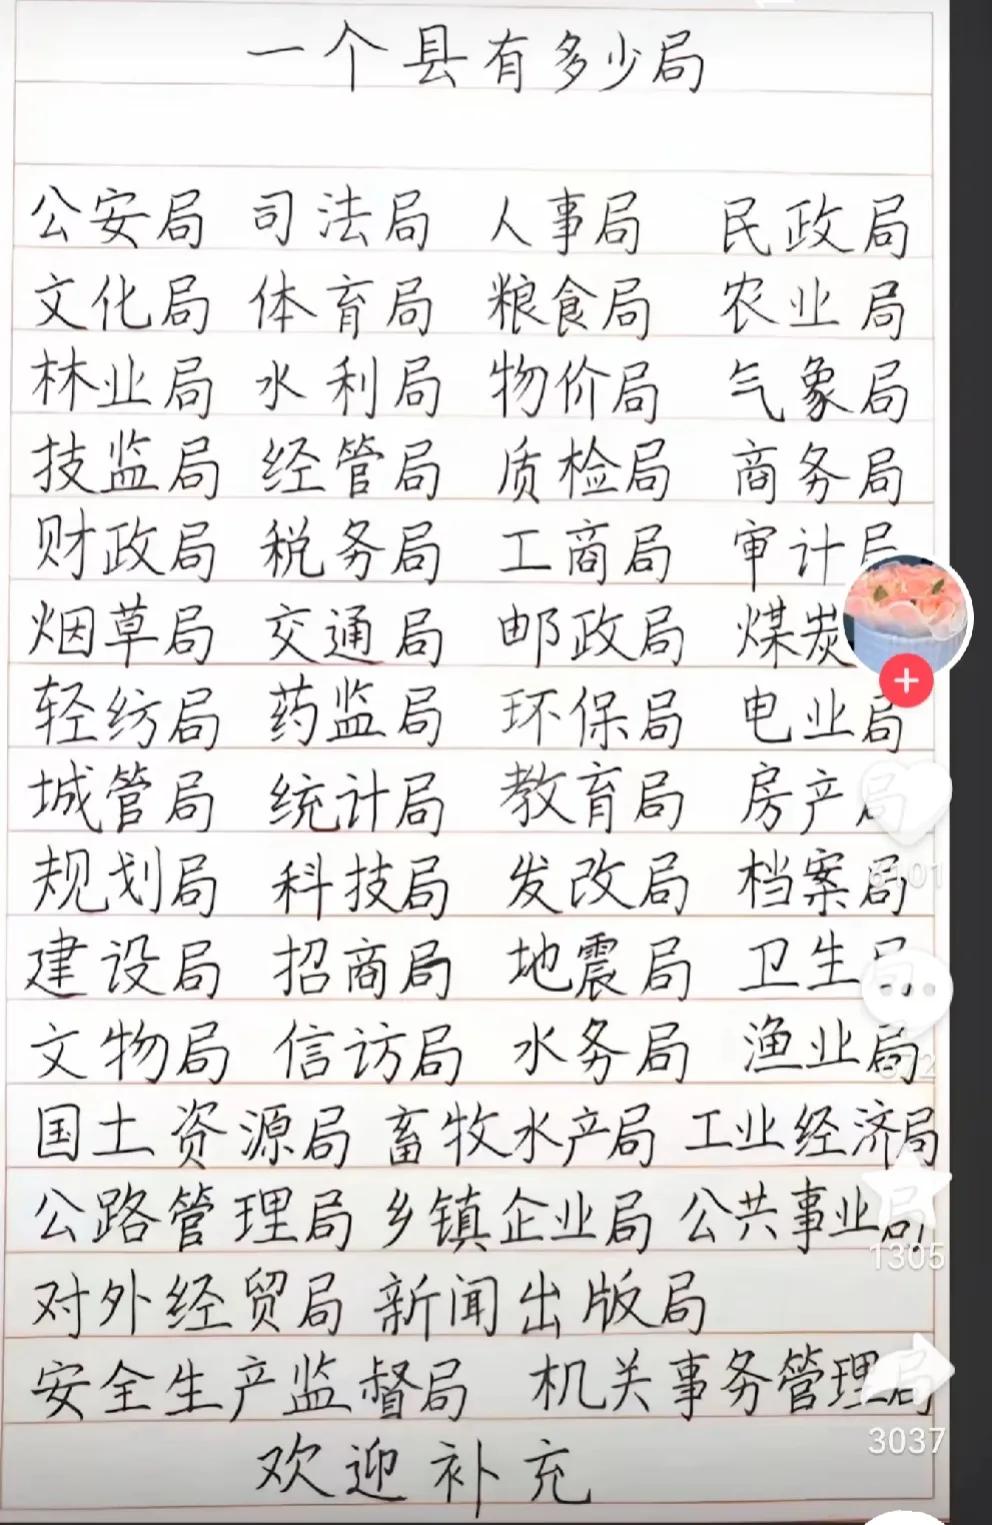 一个县有多少局
公安局 司法局 人事局 民政局
文化局 体育局 粮食局 农业局
林业局 水利局 物价局 气象局
技监局 经管局 质检局 商务局
财政局 税务局 工商局 审计局
烟草局 交通局 邮政局 煤炭
轻纺局 药监局 环保局 电业局
城管局 统计局 教育局 房产局
规划局 科技局 发改局 档案局
6101
建设局 招商局 地震局 卫生局
文物局 信访局 水务局 渔业局
国土资源局 畜牧水产局 工业经济局
公路管理局 乡镇企业局 公共事业局
1305
对外经贸局 新闻出版局
安全生产监督局 机关事务管理局
3037
欢迎补充